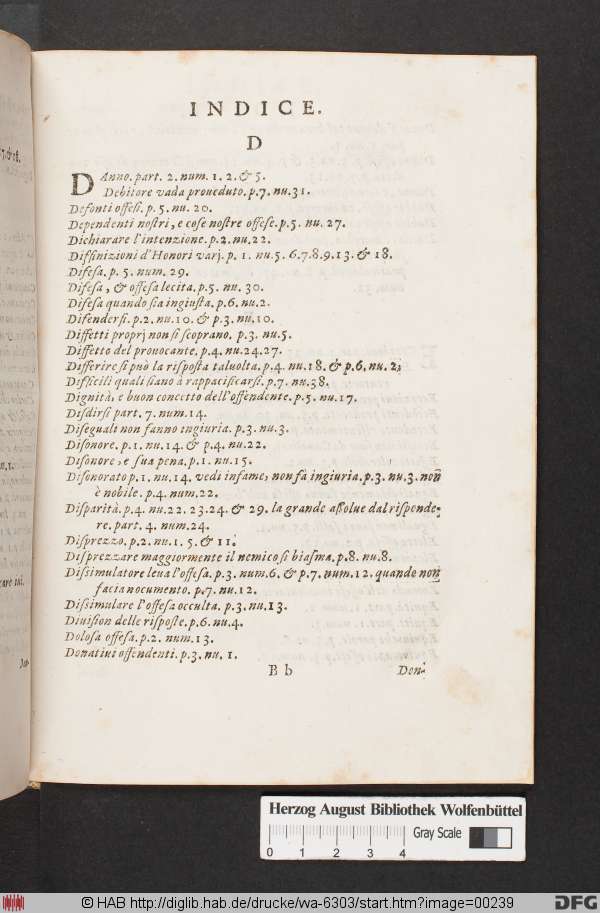 INDICE.
D
DAnno. part. 2. num. 1. 2. & 5.
Debitore vada proueduto. p. 7. nu. 31.
Defonti offesi. p. 5. nu. 20.
Dependenti nostri, e cose nostre offese. p. 5. nu. 27.
Dichiarare l'intenzione. p. 2. nu. 22.
Diffinizioni d'Honori varj. p. 1. nu. 5. 6. 7. 8. 9. 13. & 18.
Difesa. p. 5. num. 29.
Difesa, & offesa lecita. p. 5. nu. 30.
Difesa quando sia ingiusta. p. 6. nu. 2.
Difendersi. p. 2. nu. 10. & p. 3. nu. 10.
Diffetti proprj non si scoprano. p. 3. nu. 5.
Diffetto del prouocante. p. 4. nu. 24. 27.
Differire si può la risposta taluolta. p. 4. nu. 18. & p. 6. nu. 2.
Difficili quali siano à rappacificarsi. p. 7. nu. 38.
Dignità, e buon concetto dell'offendente. p. 5. nu. 17.
Disdirsi part. 7. num. 14.
Diseguali non fanno ingiuria. p. 3. nu. 3.
Disonore. p. 1. nu. 14. & p. 4. nu. 22.
Disonore, e sua pena. p. 1. nu. 15.
Disonorato p. 1. nu. 14. vedi infame, non fà ingiuria. p. 3. nu. 3. non
è nobile. p. 4. num. 22.
Disparità. p. 4. nu. 22. 23. 24. & 29. la grande assolue dal risponde-
re. part. 4. num. 24.
Disprezzo. p. 2. nu. 1. 5. & 11.
Disprezzare maggiormente il nemico si biasma. p. 8. nu. 8.
Dissimulatore leua l'offesa. p. 3. num. 6. & p. 7. num. 12. quando non
facia nocumento. p. 7. nu. 12.
Dissimulare l'offesa occulta. p. 3. nu. 13.
Diuision delle risposte. p. 6. nu. 4.
Dolosa offesa. p. 2. num. 13.
Donatiui offendenti. p. 3. nu. 1.
B b Don-
Herzog August Bibliothek Wolfenbüttel
0 1 2 3 4 Gray Scale
© HAB http://diglib.hab.de/drucke/wa-6303/start.htm?image=00239
DFG